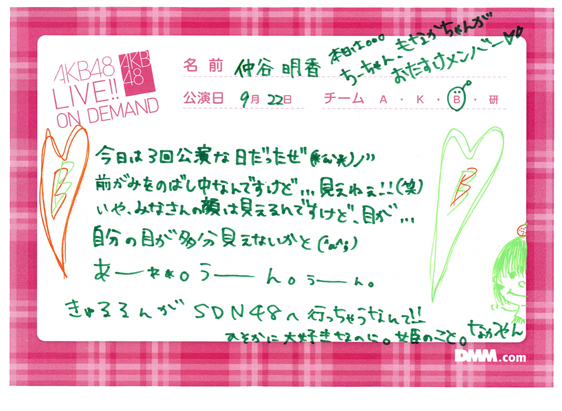 AKB48
LIVE!!
ON DEMAND
AKB
48
名前 仲谷明香
本日は。。。
ちーちゃん、もなかちゃんが
おたすけメンバー♡♡
公演日 9月22日 チーム A・K・B・研
今日は3回公演な日だったぜ
前がみをのばし中なんですけど…見えねぇ!!(笑)
いや、みなさんの顔は見えるんですけど、目が…
自分の目が多分見えないかと(^o^;)
あー。うーん。うーん。
きゅるるんがSDN48へ行っちゃうなんて!!
ひそかに大好きなのに。姫のこと。
なかやん
B
B
DMM.com